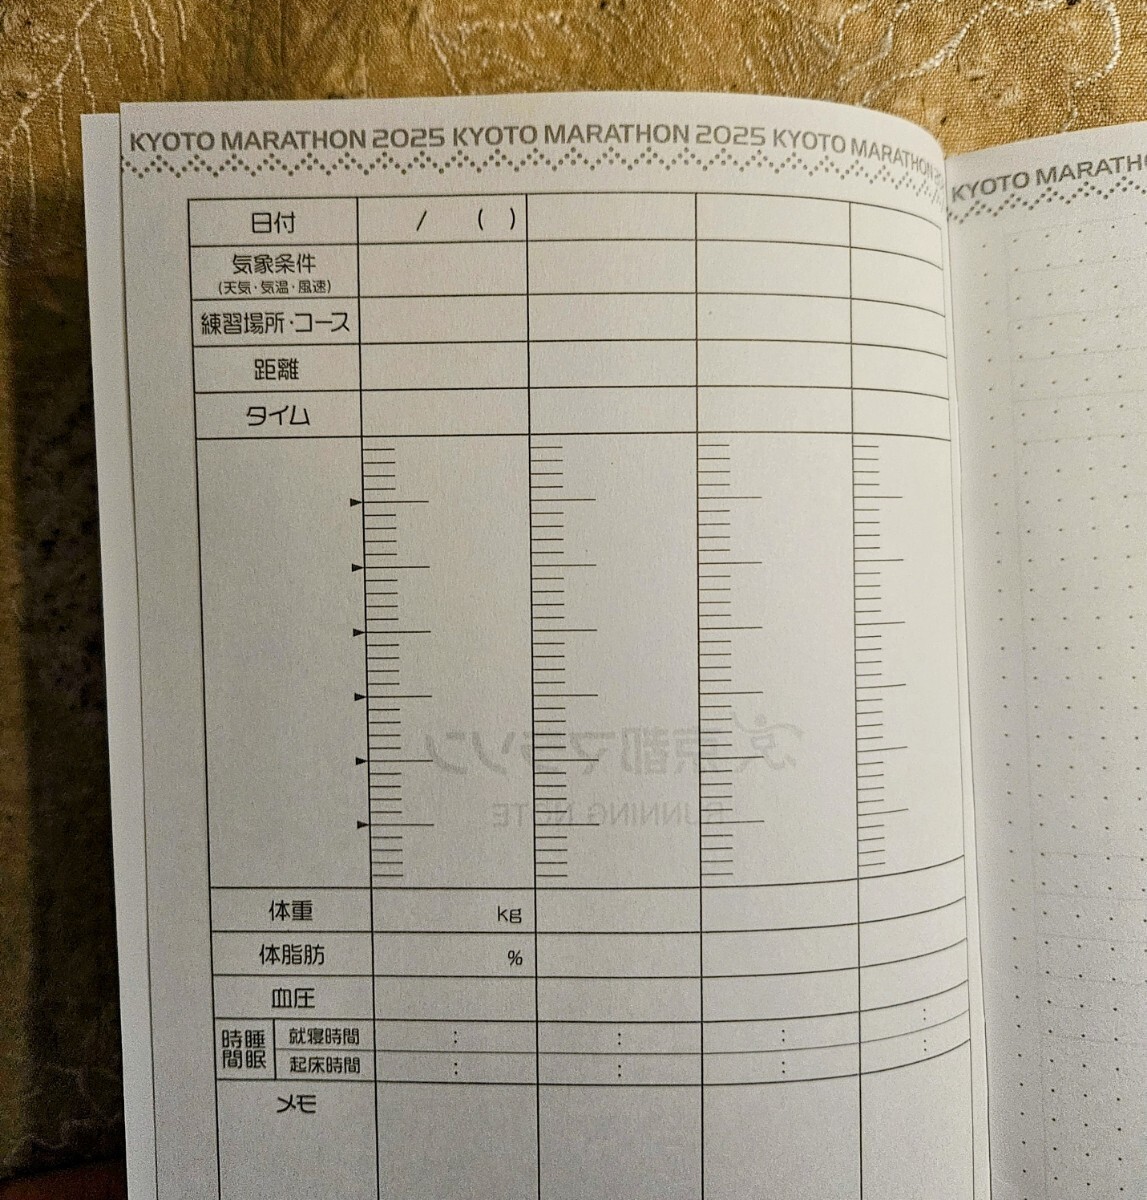 KYOTO MARATHON 2025 KYOTO MARATHON 2025 KYOTO MARATHON 2025
KYOTO MARATH
日付 / ( )
気象条件
(天気・気温・風速)
練習場所・コース
距離
タイム
京都マラソン
RUNNING NOTE
体重 kg
体脂肪 %
血圧
睡眠時間
就寝時間 : : : :
起床時間 : : : :
メモ